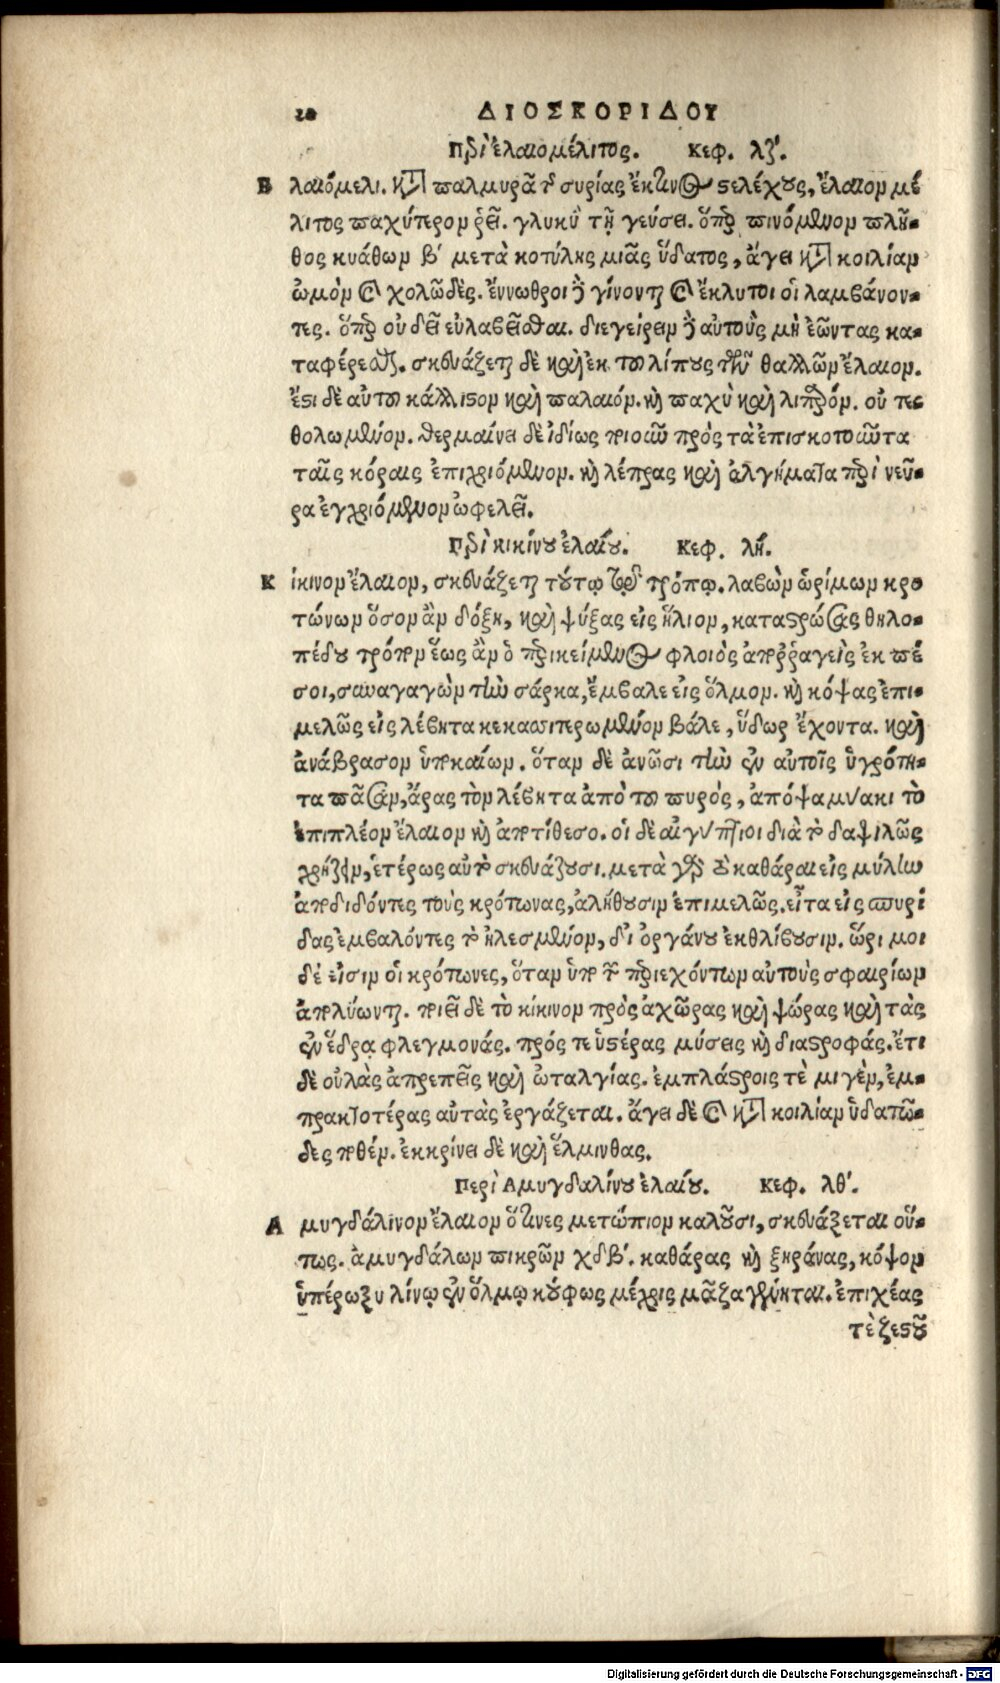 20 ΔΙΟΣΚΟΡΙΔΟΥ
Περὶ ἐλαιομέλιτος. Κεφ. λζ'.
Ε λαιόμελι. κατὰ παλμυρᾶν τῆς συρίας ἔκ τινος στελέχους, ἔλαιον μέ
λιτος παχύτερον ῥεῖ. γλυκὺ τῇ γεύσει. ὅπερ πινόμενον πλῆ-
θος κυάθων β' μετὰ κοτύλης μιᾶς ὕδατος, ἄγει κατὰ κοιλίαν
ὠμὸν καὶ χολῶδες. ἔννωθροι δὲ γίνονται καὶ ἔκλυτοι οἱ λαμβάνον-
τες. ὅπερ οὐ δεῖ εὐλαβεῖσθαι. διεγείρειν δὲ αὐτοὺς μὴ ἐῶντας κα-
ταφέρεσθαι. σκευάζεται δὲ καὶ ἐκ τοῦ λίπους τῶν θαλλῶν ἔλαιον.
ἔστι δὲ αὐτοῦ κάλλιστον καὶ παλαιόν. καὶ παχὺ καὶ λιπαρόν. οὐ τε
θολωμένον. θερμαίνει δὲ ἰδίως ποιοῦν πρὸς τὰ ἐπισκοτοῦντα
ταῖς κόραις ἐπιχριόμενον. καὶ λέπρας καὶ ἀλγήματα περὶ νεῦ-
ρα ἐγχριόμενον ὠφελεῖ.
Περὶ κικίνου ἐλαίου. Κεφ. λη.
Κ ίκινον ἔλαιον, σκευάζεται τούτῳ τῷ τρόπῳ. λαβὼν ὡρίμων κρο
τώνων ὅσον ἂν δόξῃ, καὶ ψύξας εἰς ἥλιον, καταστρώσας θηλο-
πέδου τρόπον ἕως ἂν ὁ περικείμενος φλοιὸς ἀποῤῥαγεὶς ἐκ πέ
σοι, συναγαγὼν τὴν σάρκα, ἔμβαλε εἰς ὅλμον. καὶ κόψας ἐπι-
μελῶς εἰς λέβητα κεκασσιτερωμένον βάλε, ὕδωρ ἔχοντα. καὶ
ἀνάβρασον ὑποκαίων. ὅταν δὲ ἀνῶσι τὴν ἐν αὐτοῖς ὑγρότη-
τα πᾶσαν, ἄρας τὸν λέβητα ἀπὸ τοῦ πυρός, ἀπόψα μύακι τὸ
ἐπιπλέον ἔλαιον καὶ ἀποτίθεσο. οἱ δὲ αἰγύπτιοι διὰ τὸ δαψιλῶς
χρῄζειν, ἑτέρως αὐτὸ σκευάζουσι. μετὰ γὰρ τὸ καθάραι εἰς μύλην
ἀποδιδόντες τοὺς κρότωνας, ἀλήθουσιν ἐπιμελῶς. εἶτα εἰς σπυρί
δας ἐμβαλόντες τὸ ἠλεσμένον, δι ὀργάνου ἐκθλίβουσιν. ὥρι μοι
δέ εἰσιν οἱ κρότωνες, ὅταν ὑπὸ τῶν περιεχόντων αὐτοὺς σφαιρίων
ἀπολύωνται. ποιεῖ δὲ τὸ κίκινον πρὸς ἀχῶρας καὶ ψώρας καὶ τὰς
ἐν ἕδρᾳ φλεγμονάς. πρός τε ὑστέρας μύσεις καὶ διαστροφάς. ἔτι
δὲ οὐλὰς ἀπρεπεῖς καὶ ὠταλγίας. ἐμπλάστροις τὲ μιγὲν, ἐμ-
πρακτοτέρας αὐτὰς ἐργάζεται. ἄγει δὲ καὶ κατὰ κοιλίαν ὑδατώ-
δες ποθέν. ἐκκρίνει δὲ καὶ ἕλμινθας.
Περὶ Ἀμυγδαλίνου ἐλαίου. Κεφ. λθ'.
Α μυγδάλινον ἔλαιον ὅ τινες μετώπιον καλοῦσι, σκευάζεται οὕ-
τως. ἀμυγδάλων πικρῶν χδβ'. καθάρας καὶ ξηράνας, κόψον
ὑπέρῳ ξυ λίνῳ ἐν ὅλμῳ κούφως μέχρις μᾶζα γένηται. ἐπιχέας
τὲ ζεστοῦ
Digitalisierung gefördert durch die Deutsche Forschungsgemeinschaft - DFG